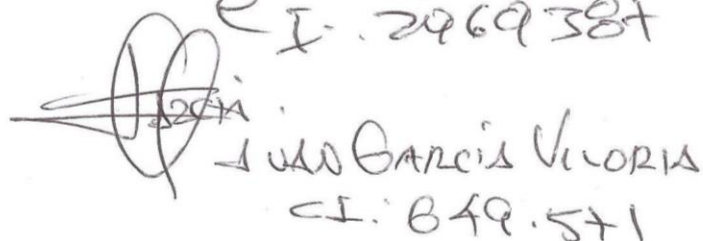 C I. 2969387
JUAN GARCIA VILORIA
CI. 649.571